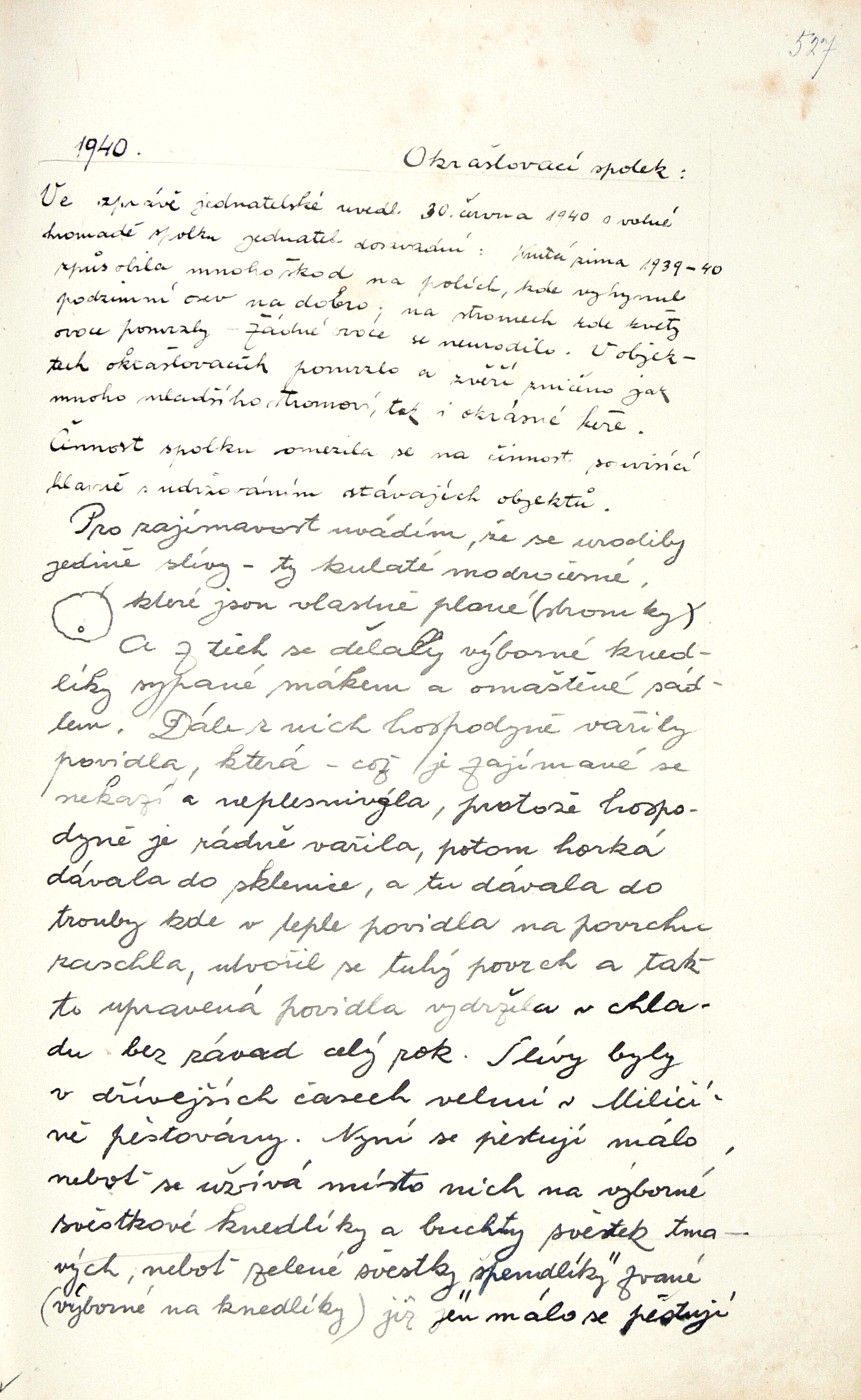 527
1940.
Okrašlovací spolek:
Ve zprávě jednatelské uvedl 30. června 1940 o valné
hromadě spolku jednatel dosavadní: Krutá zima 1939-40
způsobila mnoho škod na polích, kde vyhynul
podzimní osev na dobro; na stromech kde květy
ovoce pomrzly - žádné ovoce se neurodilo. V objek-
tech okrašlovacích pomrzlo a zvěří zničeno jak
mnoho mladšího stromoví, tak i okrasné keře.
Činnost spolku omezila se na činnost souvisící
hlavně s udržováním stávajících objektů.
Pro zajímavost uvádím, že se urodily
jedině slívy - ty kulaté modročerné,
které jsou vlastně plané (stromky)
A z těch se dělaly výborné kned-
líky sypané mákem a omaštěné sád-
lem. Dále z nich hospodyně vařily
povidla, která - což je zajímavé se
nekazí a neplesnivěla, protože hospo-
dyně je řádně vařila, potom horká
dávala do sklenice, a tu dávala do
trouby kde v teple povidla na povrchu
zaschla, utvořil se tuhý povrch a tak-
to upravená povidla vydržela v chla-
du bez závad celý rok. Slívy byly
v dřívejších časech velmi v Miličí-
ně pěstovány. Nyní se pěstují málo,
neboť se užívá místo nich na výborné
švěstkové knedlíky a buchty švěstek tma-
vých, neboť zelené švěstky špendlíky" zvané
(výborné na knedlíky) již jen málo se pěstují